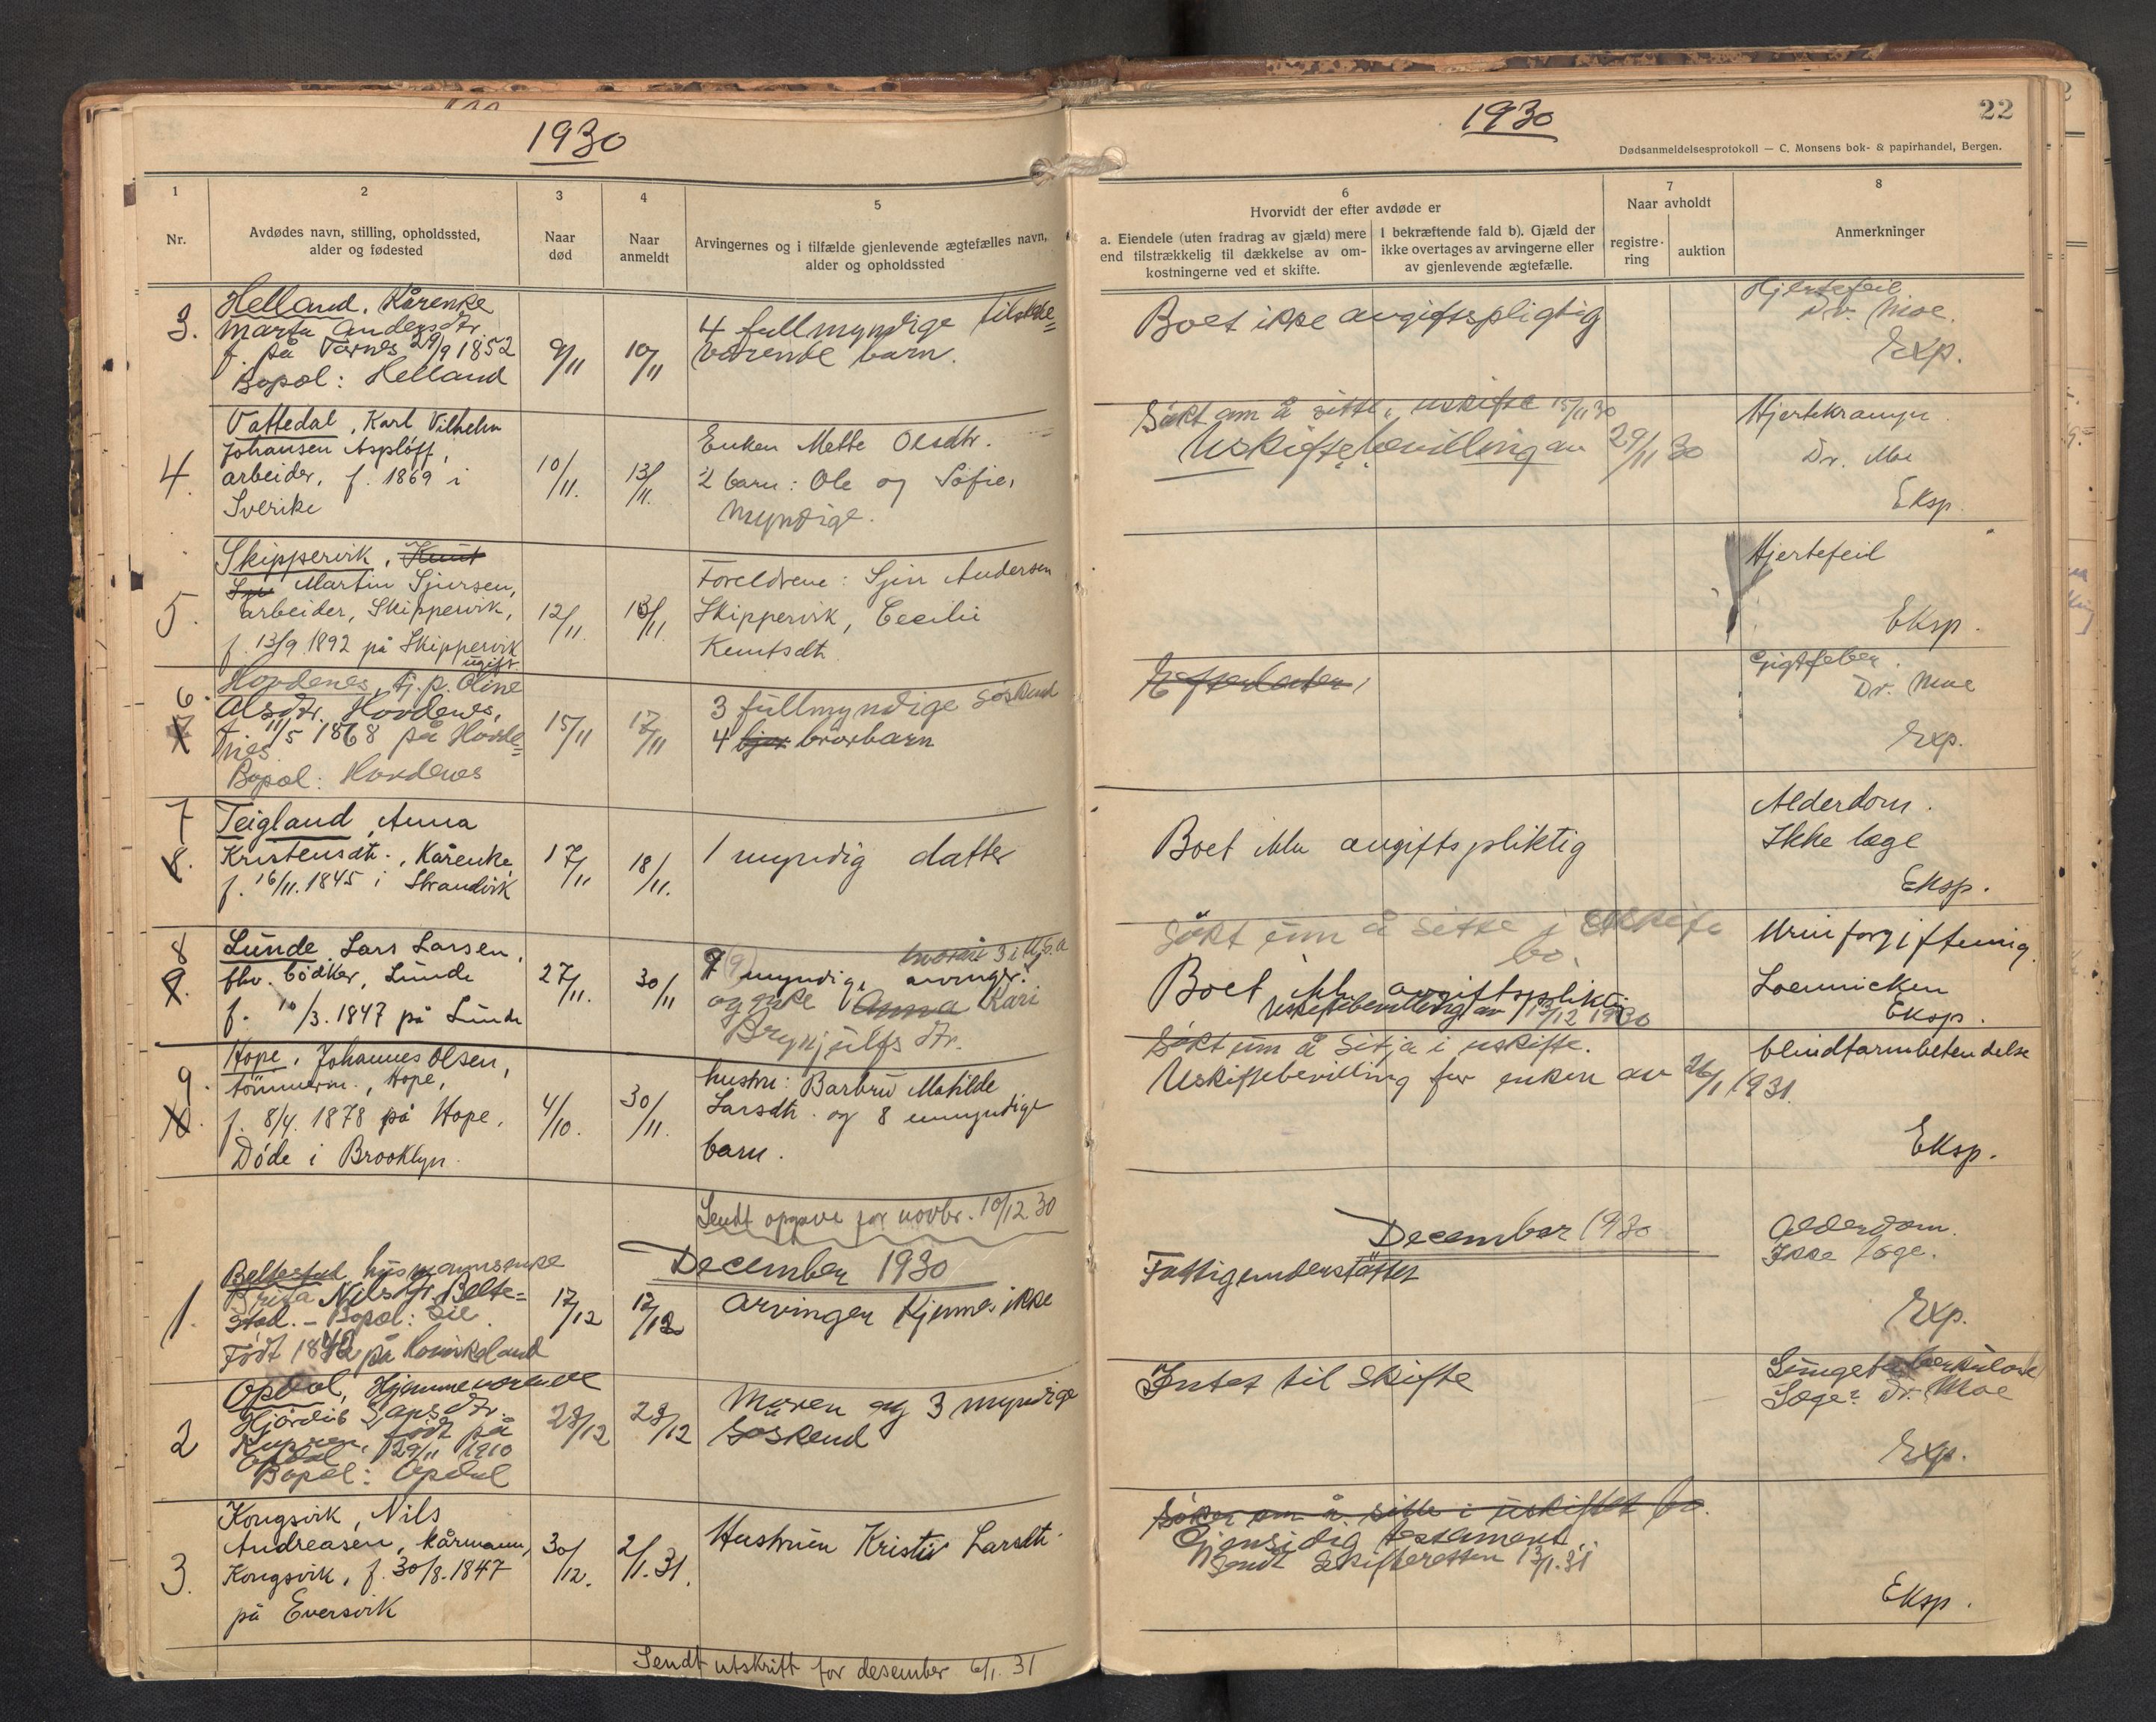 1930
1
2
3
4
5
Nr.
Avdødes navn, stilling, opholdssted,
alder og fødested
Naar
død
Naar
anmeldt
Arvingernes og i tilfælde gjenlevende ægtefælles navn,
alder og opholdssted
3.
Helland, Kårenke
Marta Andersdtr.
f. på Tornes 29/9 1852
Bopæl: Helland
9/11
10/11
4 fullmyndige tilstede=
værende barn.
4.
Vattedal, Karl Vilhelm
Johansen Asplöff,
arbeider, f. 1869 i
Sverike
10/11.
13/11.
Enken Mette Olsdtr.
2 barn: Ole og Sofie,
myndige.
5.
Skippervik, Knut
Martin Sjursen,
arbeider, Skippervik,
f. 13/9 1892 på Skippervik
ugift
12/11.
13/11.
Foreldrene: Sjur Andersen
Skippervik, Cecilie
Knutsdtr
6.
7
Hovdenes, tj.p. Oline
Olsdtr. Hovdenes,
f. 11/5 1868 på Hovde=
nes
Bopæl: Hovdenes
15/11
17/11
3 fullmyndige søskend
4 brorbarn
7
8.
Teigland, Anna
Kristensdtr., Kårenke
f. 16/11.1845 i Strandvik
17/11
18/11.
1 myndig datter
8
9.
Lunde, Lars Larsen,
fhv. bödker, Lunde
f. 10/3.1847 på Lunde
27/11.
30/11
(9) myndige arvinger
hvorav 3 i U.S.A
og enke Anna Kari
Brynjulfs dtr.
9.
10.
Hope, Johannes Olsen,
tömmerm., Hope,
f. 8/4. 1878 på Hope.
Döde i Brooklyn.
4/10.
30/11.
hustru: Barbru Matilde
Larsdtr. og 8 umyndige
barn.
Sendt opgave for novbr. 10/12 30
December 1930
1.
Beltestad, husmannsenke
Brita Nilsdtr. Belte=
stad. - Bopæl:
Født 1842 på
17/12
17/12
Arvinger kjennes ikke
2
Opdal, Hjemmeværende
Hjördis Larsdtr.
født på
Opdal 29/11 1910
Bopæl: Opdal
28/12
28/12
Moren og 3 myndige
søskend
3.
Kongsvik, Nils
Andreasen, kårmann,
Kongsvik, f. 30/8.1847
på Eversvik
30/12.
2/1.31.
Hustruen Kristi Larsdtr.
Sendt utskrift for desember 6/1. 31
1930
22
Dødsanmeldelsesprotokoll — C. Monsens bok- & papirhandel, Bergen.
6
Hvorvidt der efter avdøde er
a. Eiendele (uten fradrag av gjæld) mere
end tilstrækkelig til dækkelse av om-
kostningerne ved et skifte.
I bekræftende fald b). Gjæld der
ikke overtages av arvingerne eller
av gjenlevende ægtefælle.
7
Naar avholdt
registre-
ring
auktion
8
Anmerkninger
Boet ikke avgiftspligtig
Hjertefeil
Dr. Moe.
Exp.
Søkt om å sitte i uskifte 15/11 30
Uskiftebevilling av 29/11 30
Hjertekrampe.
Dr. Moe
Eksp.
Hjertefeil
Eksp.
Efterlater
Gigtfeber.
Dr. Moe
Exp.
Boet ikke avgiftspliktig
Alderdom.
Ikke læge
Eksp.
Søkt um å sitte i uskifta
bo.
Boet ikke avgiftspliktig
Uskiftebevilling av 13/12 1930
Urinforgiftning
Loennicken
Eksp.
Søkt um å sitja i uskifte.
Uskiftebevilling for enken av 26/1 1931.
blindtarmbetendelse
Eksp.
December 1930
Fattigunderstøttet
Alderdom.
Ikke læge.
Exp.
Intet til skifte
Lungetuberkulose
Læge: Dr. Moe
Exp.
Søker om å sitte i uskiftet bo.
Gjensidig testament.
Sendt Skifteretten 13/1.31
Eksp.